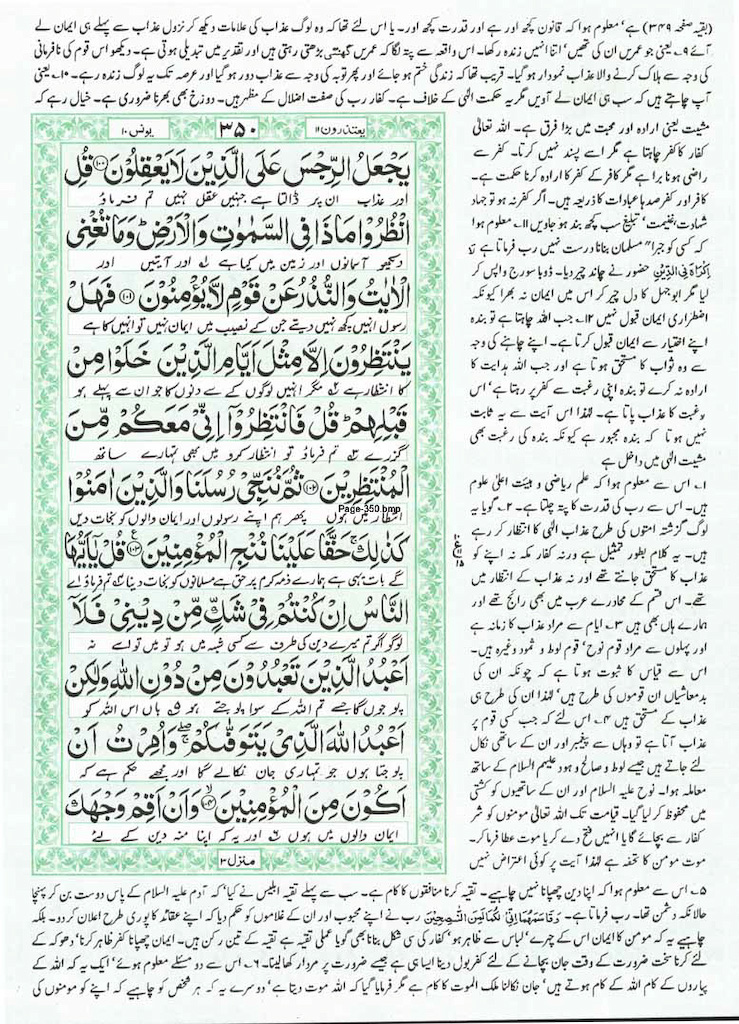 (بقیہ صفحہ ۳۴۹) ہے' معلوم ہوا کہ قانون کچھ اور ہے اور قدرت کچھ اور۔ یا اس لئے تھا کہ وہ لوگ عذاب کی علامات دیکھ کر نزول عذاب سے پہلے ہی ایمان لے
آئے ۹۔ یعنی جو عمریں ان کی تھیں' اتنا انہیں زندہ رکھا۔ اس واقعہ سے پتہ لگا کہ عمریں گھٹتی بڑھتی رہتی ہیں اور تقدیر میں تبدیلی ہوتی ہے۔ دیکھو اس قوم کی نافرمانی
کی وجہ سے ہلاک کرنے والا عذاب نمودار ہو گیا۔ قریب تھا کہ زندگی ختم ہو جائے اور پھر توبہ کی وجہ سے عذاب دور ہو گیا اور عرصہ تک یہ لوگ زندہ رہے۔ ۱۰۔ یعنی
آپ چاہتے ہیں کہ سب ہی ایمان لے آویں مگر یہ حکمت الٰہی کے خلاف ہے۔ کفار رب کی صفت اضلال کے مظہر ہیں۔ دوزخ بھی بھرنا ضروری ہے۔ خیال رہے کہ
مشیت یعنی ارادہ اور محبت میں بڑا فرق ہے۔ اللہ تعالیٰ
کفار کا کفر چاہتا ہے مگر اسے پسند نہیں کرتا۔ کفر سے
راضی ہونا برا ہے مگر کافر کے کفر کا ارادہ کرنا حکمت ہے۔
کافر اور کفر صدہا عبادات کا ذریعہ ہیں۔ اگر کفر نہ ہو تو جہاد
شہادت' غنیمت' تبلیغ سب کچھ بند ہو جاویں ۱۱۔ معلوم ہوا
کہ کسی کو جبراً" مسلمان بنانا درست نہیں رب فرماتا ہے لَآ
اِکْرَاہَ فِی الدِّیْنِ حضور نے چاند چیر دیا۔ ڈوبا سورج واپس کر
لیا مگر ابوجہل کا دل چیر کر اس میں ایمان نہ بھرا کیونکہ
اضطراری ایمان قبول نہیں ۱۲۔ جب اللہ چاہتا ہے تو بندہ
اپنے اختیار سے ایمان قبول کرتا ہے۔ اپنے چاہنے کی وجہ
سے وہ ثواب کا مستحق ہوتا ہے اور جب اللہ ہدایت کا
ارادہ نہ کرے تو بندہ اپنی رغبت سے کفر پر رہتا ہے' اس
رغبت کا عذاب پاتا ہے۔ لہٰذا اس آیت سے یہ ثابت
نہیں ہوتا کہ بندہ مجبور ہے کیونکہ بندہ کی رغبت بھی
مشیت الٰہی میں داخل ہے
۱۔ اس سے معلوم ہوا کہ علم ریاضی و ہیئت اعلیٰ علوم
ہیں۔ اس سے رب کی قدرت کا پتہ چلتا ہے۔ ۲۔ گویا یہ
لوگ گزشتہ امتوں کی طرح عذاب الٰہی کا انتظار کر رہے
ہیں۔ یہ کلام بطور تمثیل ہے ورنہ کفار مکہ نہ اپنے کو
عذاب کا مستحق جانتے تھے اور نہ عذاب کے انتظار میں
تھے۔ اس قسم کے محاورے عرب میں بھی رائج تھے اور
ہمارے ہاں بھی ہیں ۳۔ ایام سے مراد عذاب کا زمانہ ہے
اور پہلوں سے مراد قوم نوح' قوم لوط و ثمود وغیرہ ہیں۔
اس سے قیاس کا ثبوت ہوتا ہے کہ چونکہ ان کی
بدمعاشیاں ان قوموں کی طرح ہیں' لہٰذا ان کی طرح ہی
عذاب کے مستحق ہیں ۴۔ اس لئے کہ جب کسی قوم پر
عذاب آتا ہے تو وہاں سے پیغمبر اور ان کے ساتھی نکال
لئے جاتے ہیں جیسے لوط و صالح و ہود علیہم السلام کے ساتھ
معاملہ ہوا۔ نوح علیہ السلام اور ان کے ساتھیوں کو کشتی
میں محفوظ کر لیا گیا۔ قیامت تک اللہ تعالیٰ مومنوں کو شر
کفار سے بچائے گا یا انہیں فتح دے کر یا موت عطا فرما کر۔
موت مومن کا تحفہ ہے لہٰذا آیت پر کوئی اعتراض نہیں
یعتذرون ۱۱
۳۵۰
یونس ۱۰
یَجْعَلُ الرِّجْسَ عَلَی الَّذِیْنَ لَا یَعْقِلُوْنَ ۝۱۰۰ قُلِ
اور عذاب ان پر ڈالتا ہے جنہیں عقل نہیں تم فرماؤ
انْظُرُوْا مَاذَا فِی السَّمٰوٰتِ وَالْاَرْضِ ؕ وَمَا تُغْنِی
دیکھو آسمانوں اور زمین میں کیا ہے ۱؎ اور آیتیں اور
الْاٰیٰتُ وَالنُّذُرُ عَنْ قَوْمٍ لَّا یُؤْمِنُوْنَ ۝۱۰۱ فَهَلْ
رسول انہیں کچھ نہیں دیتے جن کے نصیب میں ایمان نہیں تو انہیں کاہے
یَنْتَظِرُوْنَ اِلَّا مِثْلَ اَیَّامِ الَّذِیْنَ خَلَوْا مِنْ
کا انتظار ہے ۲؎ مگر انہیں لوگوں کے سے دنوں کا جو ان سے پہلے ہو
قَبْلِهِمْ ؕ قُلْ فَانْتَظِرُوْۤا اِنِّیْ مَعَكُمْ مِّنَ
گزرے ۳؎ تم فرماؤ تو انتظار کرو میں بھی تمہارے ساتھ
الْمُنْتَظِرِیْنَ ۝۱۰۲ ثُمَّ نُنَجِّیْ رُسُلَنَا وَالَّذِیْنَ اٰمَنُوْا
Page-350.bmp
انتظار میں ہوں پھر ہم اپنے رسولوں اور ایمان والوں کو نجات دیں
كَذٰلِكَ ۚ حَقًّا عَلَیْنَا نُنْجِ الْمُؤْمِنِیْنَ ۝۱۰۳ قُلْ یٰۤاَیُّهَا
گے بات یہی ہے ہمارے ذمہ کرم پر حق ہے مسلمانوں کو نجات دینا ۴؎ تم فرماؤ اے
النَّاسُ اِنْ كُنْتُمْ فِیْ شَكٍّ مِّنْ دِیْنِیْ فَلَاۤ
لوگو اگر تم میرے دین کی طرف سے کسی شبہ میں ہو تو میں تو اسے نہ
اَعْبُدُ الَّذِیْنَ تَعْبُدُوْنَ مِنْ دُوْنِ اللّٰهِ وَلٰكِنْ
پوجوں گا جسے تم اللہ کے سوا پوجتے ہو ۵؎ ہاں اس اللہ کو
اَعْبُدُ اللّٰهَ الَّذِیْ یَتَوَفّٰىكُمْ ۖۚ وَاُمِرْتُ اَنْ
پوجتا ہوں جو تمہاری جان نکالے گا اور مجھے حکم ہے کہ
اَكُوْنَ مِنَ الْمُؤْمِنِیْنَ ۝۱۰۴ وَاَنْ اَقِمْ وَجْهَكَ
ایمان والوں میں ہوں ۶؎ اور یہ کہ اپنا منہ دین کے لئے
منزل ۳
۵۔ اس سے معلوم ہوا کہ اپنا دین چھپانا نہیں چاہیے۔ تقیہ کرنا منافقوں کا کام ہے۔ سب سے پہلے تقیہ ابلیس نے کیا' کہ آدم علیہ السلام کے پاس دوست بن کر پہنچا
حالانکہ دشمن تھا۔ رب فرماتا ہے۔ وَقَاسَمَهُمَاۤ اِنِّیْ لَكُمَا لَمِنَ النّٰصِحِیْنَ رب نے اپنے محبوب اور ان کے غلاموں کو حکم دیا کہ اپنے عقائد کا پوری طرح اعلان کر دو۔ بلکہ
چاہیے یہ کہ مومن کا ایمان اس کے چہرے' لباس سے ظاہر ہو' کفار کی سی شکل بنانا بھی گویا عملی تقیہ ہے تقیہ کے تین رکن ہیں۔ ایمان چھپانا کفر ظاہر کرنا' دھوکہ کے
لئے کرنا سخت ضرورت کے وقت جان بچانے کے لئے کفر بول دینا ایسا ہی ہے جیسے ضرورت پر مردار کھا لینا۔ ۶۔ اس سے دو مسئلے معلوم ہوئے' ایک یہ کہ اللہ کے
پیاروں کے کام اللہ کے کام ہوتے ہیں' جان نکالنا ملک الموت کا کام ہے مگر فرمایا گیا کہ اللہ موت دیتا ہے' دوسرے یہ کہ ہر شخص کو چاہیے کہ اپنے کو مومنوں کی